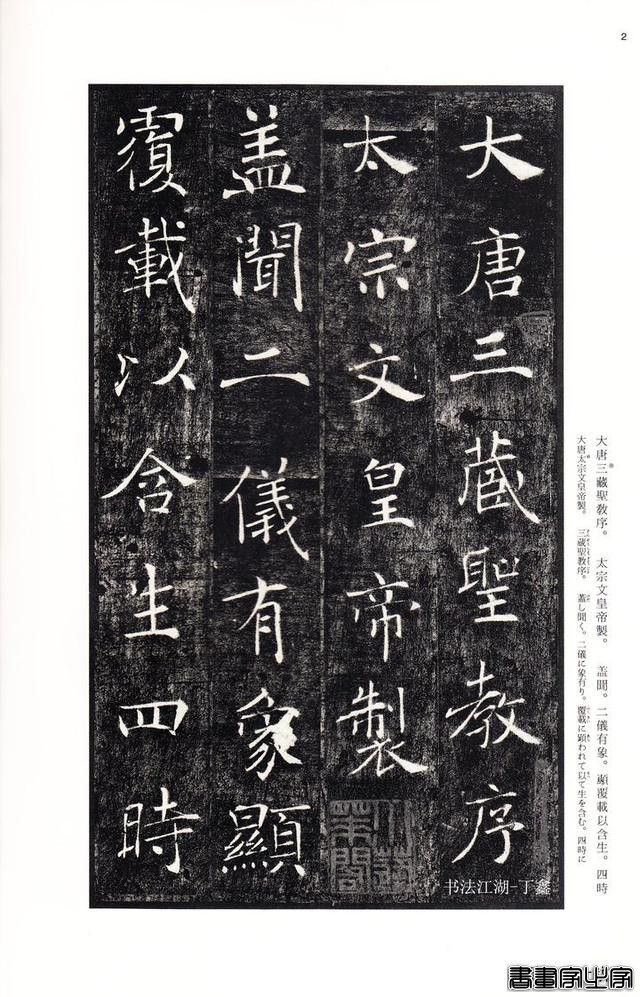 2
大唐三藏聖教序
太宗文皇帝製
盖聞二儀有象顯
覆載以含生四時
大唐三藏聖教序。 太宗文皇帝製。 盖聞。二儀有象。顯覆載以含生。四時
大唐太宗文皇帝製。 三蔵聖教序。 蓋し聞く。二儀に象有り。覆載に顕われて以て生を含む。四時に
书法江湖-丁鑫
書畫家之家